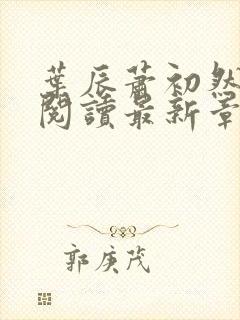 葉辰蕭初然
閱讀最新章
郭庚茂